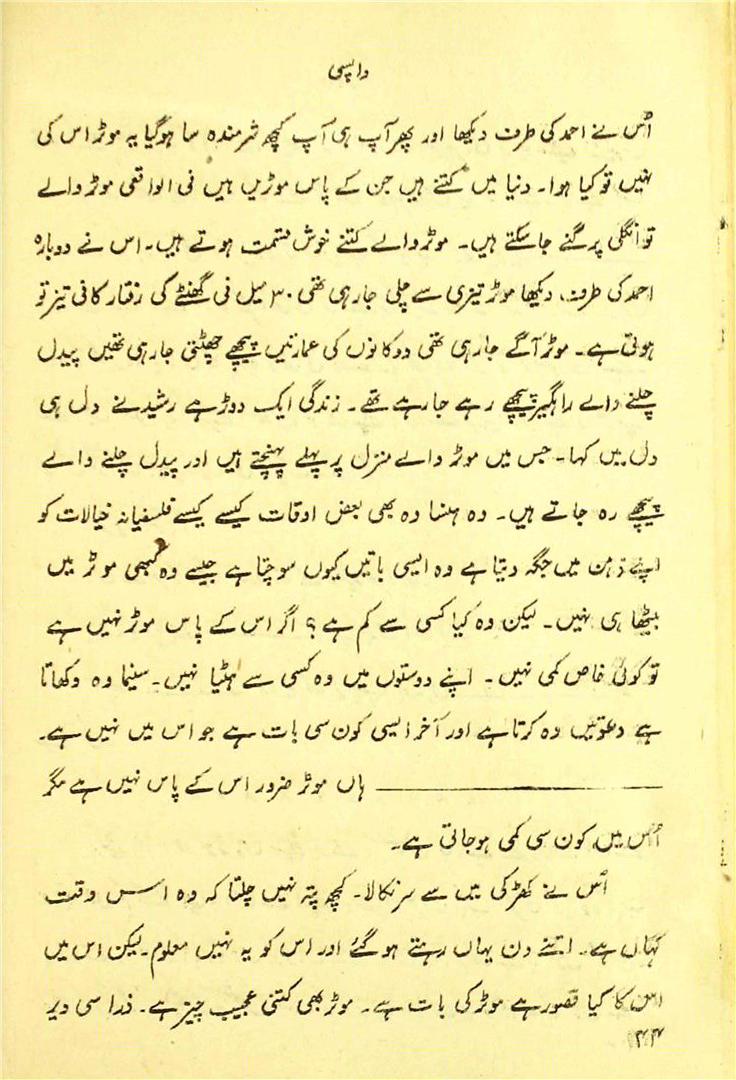 واپسی
اُس نے احمد کی طرف دیکھا اور پھر آپ ہی آپ کچھ شرمندہ سا ہوگیا یہ موٹر اس کی
نہیں تو کیا ہوا۔ دنیا میں کتنے ہیں جن کے پاس موڑیں ہیں فی الواقعی موٹر والے
تو انگلی پر گنے جا سکتے ہیں۔ موٹر والے کتنے خوش قسمت ہوتے ہیں۔ اس نے دوبارہ
احمد کی طرف دیکھا موٹر تیزی سے چلی جا رہی تھی ۳۰ میل فی گھنٹے کی رفتار کافی تیز تو
ہوتی ہے۔ موٹر آگے جا رہی تھی دوکانوں کی عمارتیں پیچھے چھٹتی جا رہی تھیں پیدل
چلنے والے راہگیر پیچھے رہے جا رہے تھے۔ زندگی ایک دوڑ ہے رشید نے دل ہی
دل میں کہا۔ جس میں موٹر والے منزل پر پہلے پہنچتے ہیں اور پیدل چلنے والے
پیچھے رہ جاتے ہیں۔ وہ ہنسا وہ بھی بعض اوقات کیسے کیسے فلسفیانہ خیالات کو
اپنے ذہن میں جگہ دیتا ہے وہ ایسی باتیں کیوں سوچتا ہے جیسے وہ کبھی موٹر میں
بیٹھا ہی نہیں۔ لیکن وہ کیا کسی سے کم ہے؟ اگر اس کے پاس موٹر نہیں ہے
تو کوئی خاص کمی نہیں۔ اپنے دوستوں میں وہ کسی سے ہٹیا نہیں۔ سنیما وہ دکھاتا
ہے دعوتیں وہ کرتا ہے اور آخر ایسی کون سی بات ہے جو اس میں نہیں ہے۔
ــــــــــــــــ ہاں موٹر ضرور اس کے پاس نہیں ہے مگر
اُس میں کون سی کمی ہو جاتی ہے۔
اُس نے کھڑکی میں سے سر نکالا۔ کچھ پتہ نہیں چلتا کہ وہ اس وقت
کہاں ہے۔ اتنے دن یہاں رہتے ہو گئے اور اس کو یہ نہیں معلوم۔ لیکن اس میں
اس کا کیا قصور ہے موٹر کی بات ہے۔ موٹر بھی کتنی عجیب چیز ہے۔ ذرا سی دیر